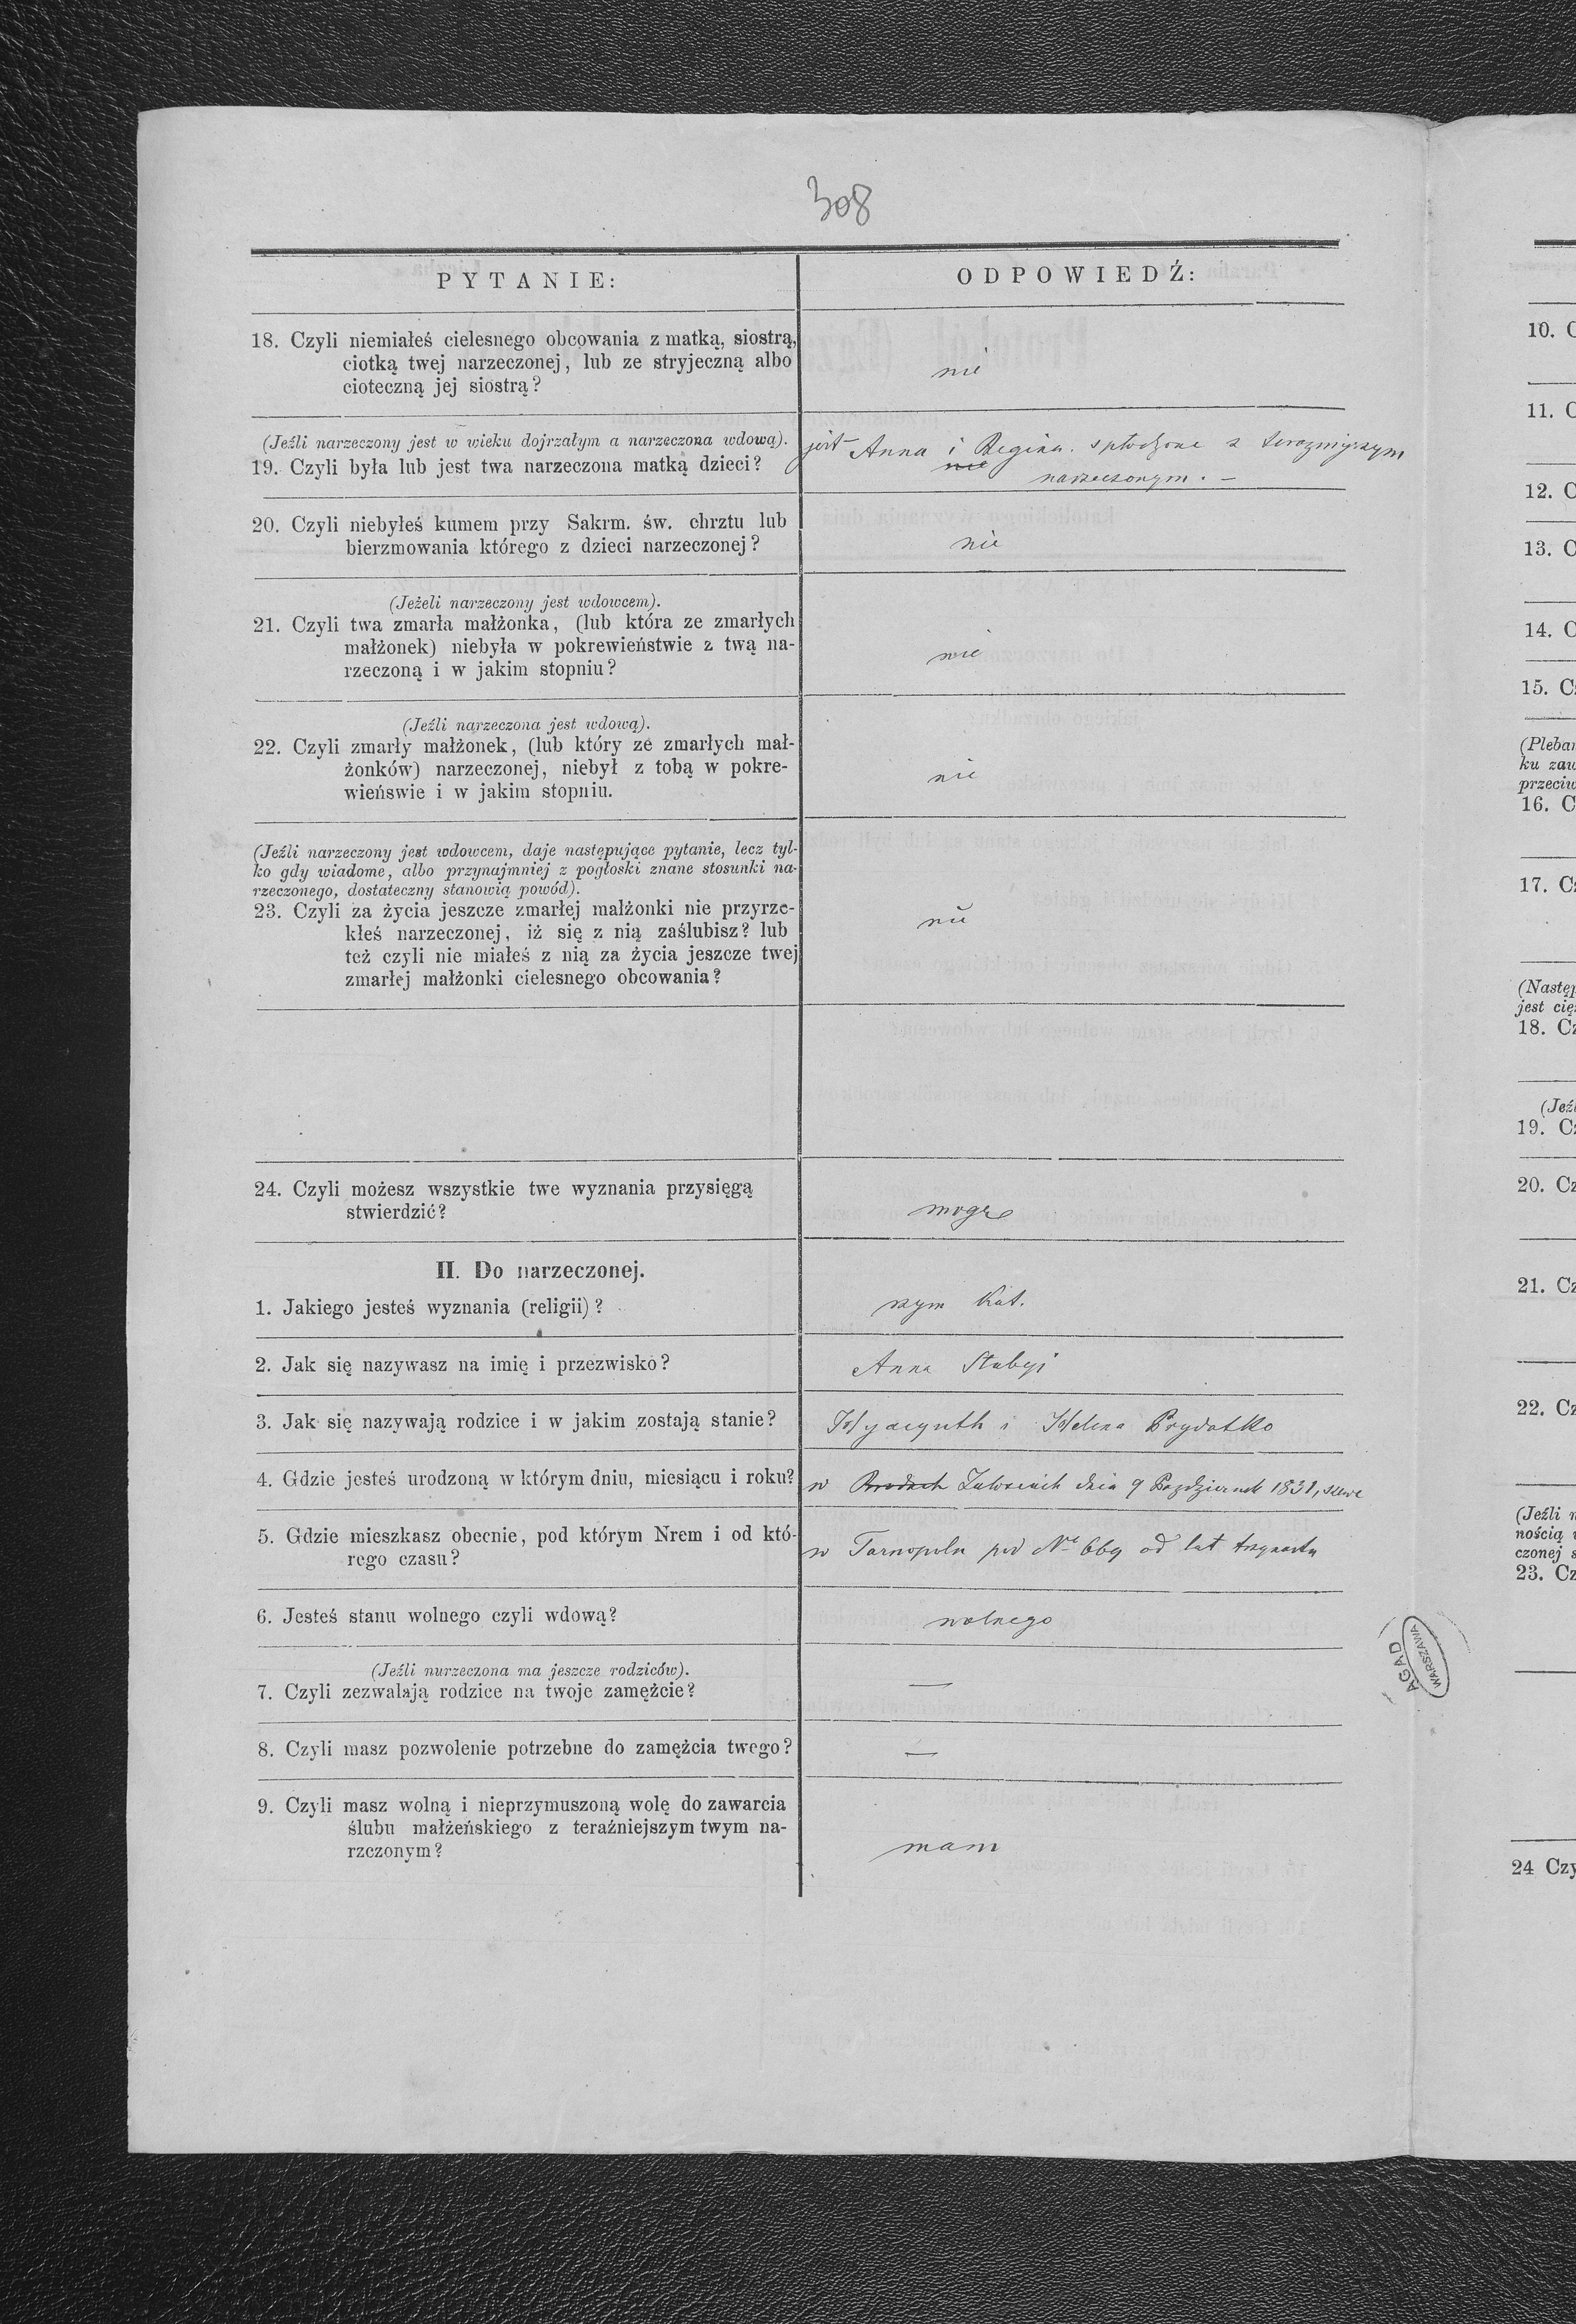 308
PYTANIE:
ODPOWIEDŹ:
18. Czyli niemiałeś cielesnego obcowania z matką, siostrą,
ciotką twej narzeczonej, lub ze stryjeczną albo
cioteczną jej siostrą?
nie
(Jeźli narzeczony jest w wieku dojrzałym a narzeczona wdową).
19. Czyli była lub jest twa narzeczona matką dzieci?
jest Anna i Regina. spłodzone z terazniejszym
nie
narzeczonym. –
20. Czyli niebyłeś kumem przy Sakrm. św. chrztu lub
bierzmowania którego z dzieci narzeczonej?
nie
(Jeżeli narzeczony jest wdowcem).
21. Czyli twa zmarła małżonka, (lub która ze zmarłych
małżonek) niebyła w pokrewieństwie z twą na-
rzeczoną i w jakim stopniu?
nie
(Jeźli narzeczona jest wdową).
22. Czyli zmarły małżonek, (lub który ze zmarłych mał-
żonków) narzeczonej, niebył z tobą w pokre-
wieńswie i w jakim stopniu.
nie
(Jeźli narzeczony jest wdowcem, daje następujące pytanie, lecz tyl-
ko gdy wiadome, albo przynajmniej z pogłoski znane stosunki na-
rzeczonego, dostateczny stanowią powód).
23. Czyli za życia jeszcze zmarłej małżonki nie przyrze-
kłeś narzeczonej, iż się z nią zaślubisz? lub
też czyli nie miałeś z nią za życia jeszcze twej
zmarłej małżonki cielesnego obcowania?
nie
24. Czyli możesz wszystkie twe wyznania przysięgą
stwierdzić?
mogę
II. Do narzeczonej.
1. Jakiego jesteś wyznania (religii)?
rzym kat.
2. Jak się nazywasz na imię i przezwisko?
Anna
3. Jak się nazywają rodzice i w jakim zostają stanie?
Hyacynth i Helena Prydatko
4. Gdzie jesteś urodzoną w którym dniu, miesiącu i roku?
w Brodach dnia 9 1831,
5. Gdzie mieszkasz obecnie, pod którym Nrem i od któ-
rego czasu?
w Tarnopolu pod Nr 669 od lat
6. Jesteś stanu wolnego czyli wdową?
wolnego
(Jeźli nurzeczona ma jeszcze rodziców).
7. Czyli zezwalają rodzice na twoje zamężcie?
—
8. Czyli masz pozwolenie potrzebne do zamężcia twego?
—
9. Czyli masz wolną i nieprzymuszoną wolę do zawarcia
ślubu małżeńskiego z teraźniejszym twym na-
rzczonym?
mam
AGAD
WARSZAWA
10. C
11. C
12. C
13. C
14. C
15. C
(Pleban
ku zaw
przeciw
16. C
17. Cz
(Następ
jest cię
18. Cz
(Jeź
19. Cz
20. Cz
21. Cz
22. Cz
(Jeźli n
nością
czonej s
23. Cz
24 Czy